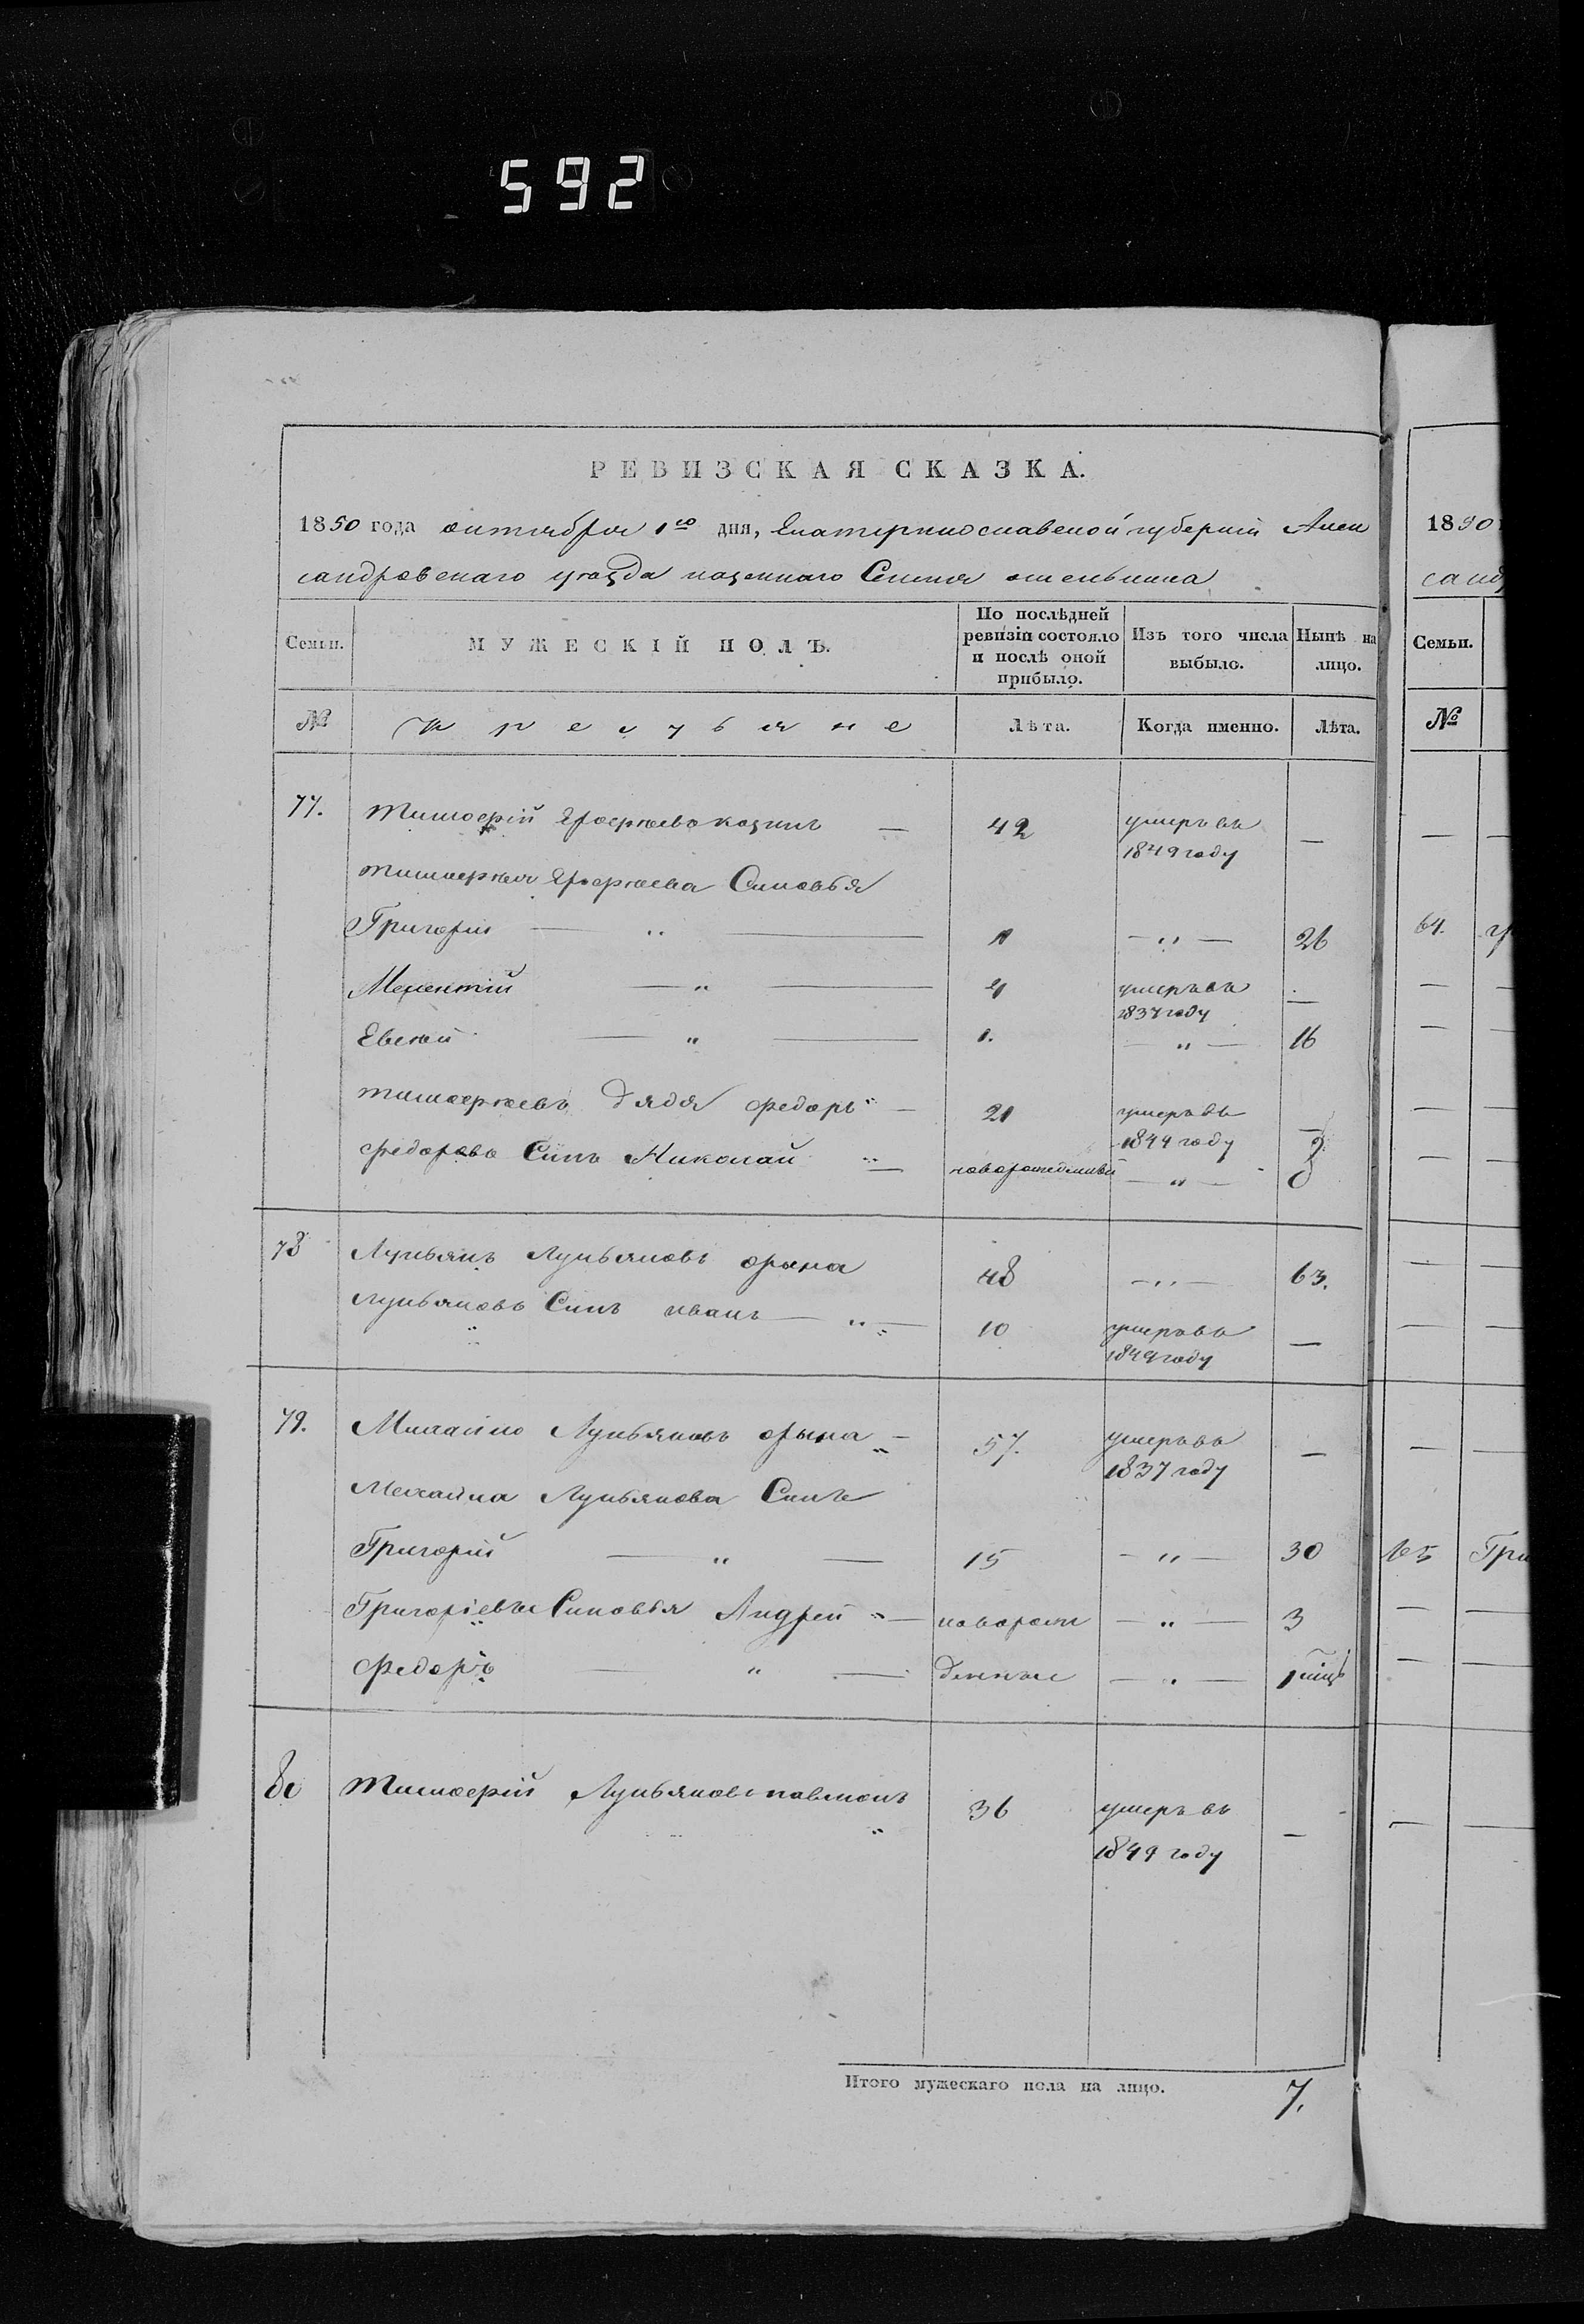 592
РЕВИЗСКАЯ СКАЗКА.
1850 года октября 1го дня, Екатеринославской губернiи Алек
сандровскаго уѣзда казеннаго Селенiя
Семьи. МУЖЕСКIЙ ПОЛЪ. По послѣдней ревизiи состояло и послѣ оной прибыло. Изъ того числа выбыло. Нынѣ на лицо.
№ Лѣта. Когда именно. Лѣта.
77. Тимофiй 42 умеръ въ 1849 году —
Тимофiя Сыновья
Григорiй — " — — " — 26
Мелентiй — " — умеръ въ 1837 году —
Евсей — " — 1. — " — 16
Тимофiевъ дядя Федоръ — 21 умеръ въ 1844 году —
Федоровъ Сынъ Николай новорожденный — " — 8
78 Лукьянъ Лукьяновъ 48 — " — 63.
Лукьяновъ Сынъ иванъ — " — 10 умеръ въ 1849 году —
79. Михайло Лукьяновъ — 57. умеръ въ 1837 году —
Михайла Лукьянова Сынъ
Григорiй — " — 15 — " — 30
Григорiевы Сыновья Андрей — новорож — " — 3
Федоръ — " — денные — " — 1
80 Тимофiй Лукьяновъ 36 умеръ въ 1849 году —
Итого мужескаго пола на лицо. 7.
1850
санд
Семьи.
№
64.
Гри